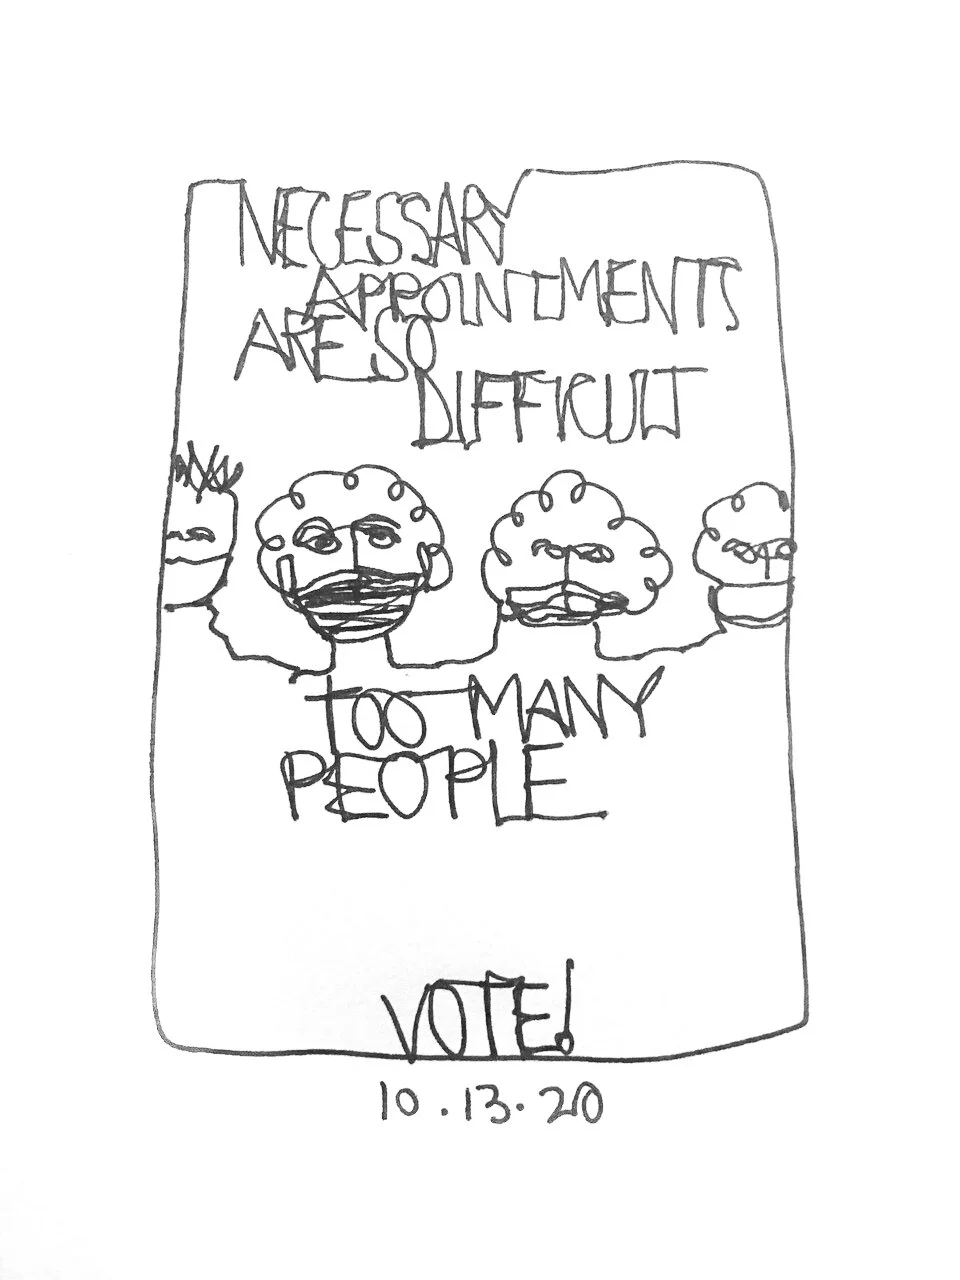 NECESSARY
APPOINTMENTS
ARE SO
DIFFICULT
TOO MANY
PEOPLE
VOTE!
10.13.20